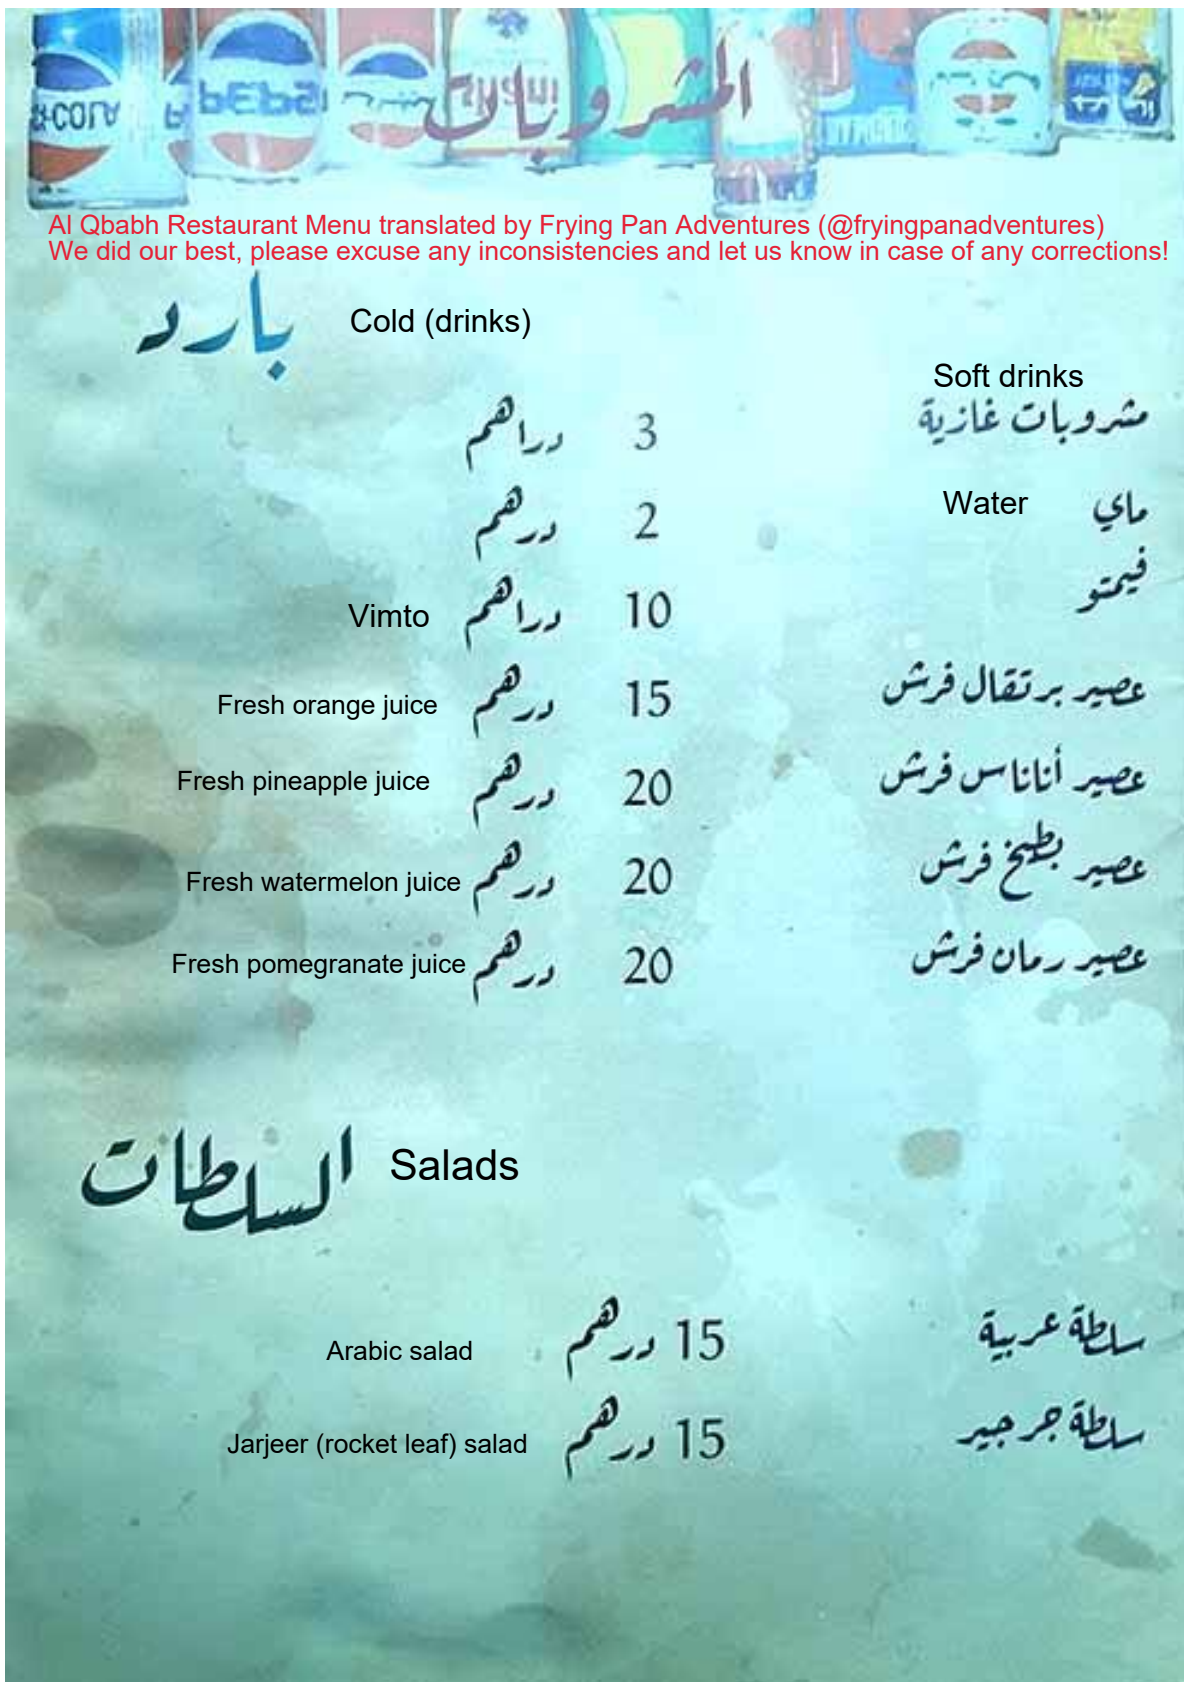 المشروبات
PEPSI
Al Qbabh Restaurant Menu translated by Frying Pan Adventures (@fryingpanadventures)
We did our best, please excuse any inconsistencies and let us know in case of any corrections!
بارد Cold (drinks)
Soft drinks
مشروبات غازية 3 دراهم
ماي Water 2 درهم
فيمتو 10 دراهم Vimto
عصير برتقال فرش 15 درهم Fresh orange juice
عصير أناناس فرش 20 درهم Fresh pineapple juice
عصير بطيخ فرش 20 درهم Fresh watermelon juice
عصير رمان فرش 20 درهم Fresh pomegranate juice
السلطات Salads
سلطة عربية 15 درهم Arabic salad
سلطة جرجير 15 درهم Jarjeer (rocket leaf) salad